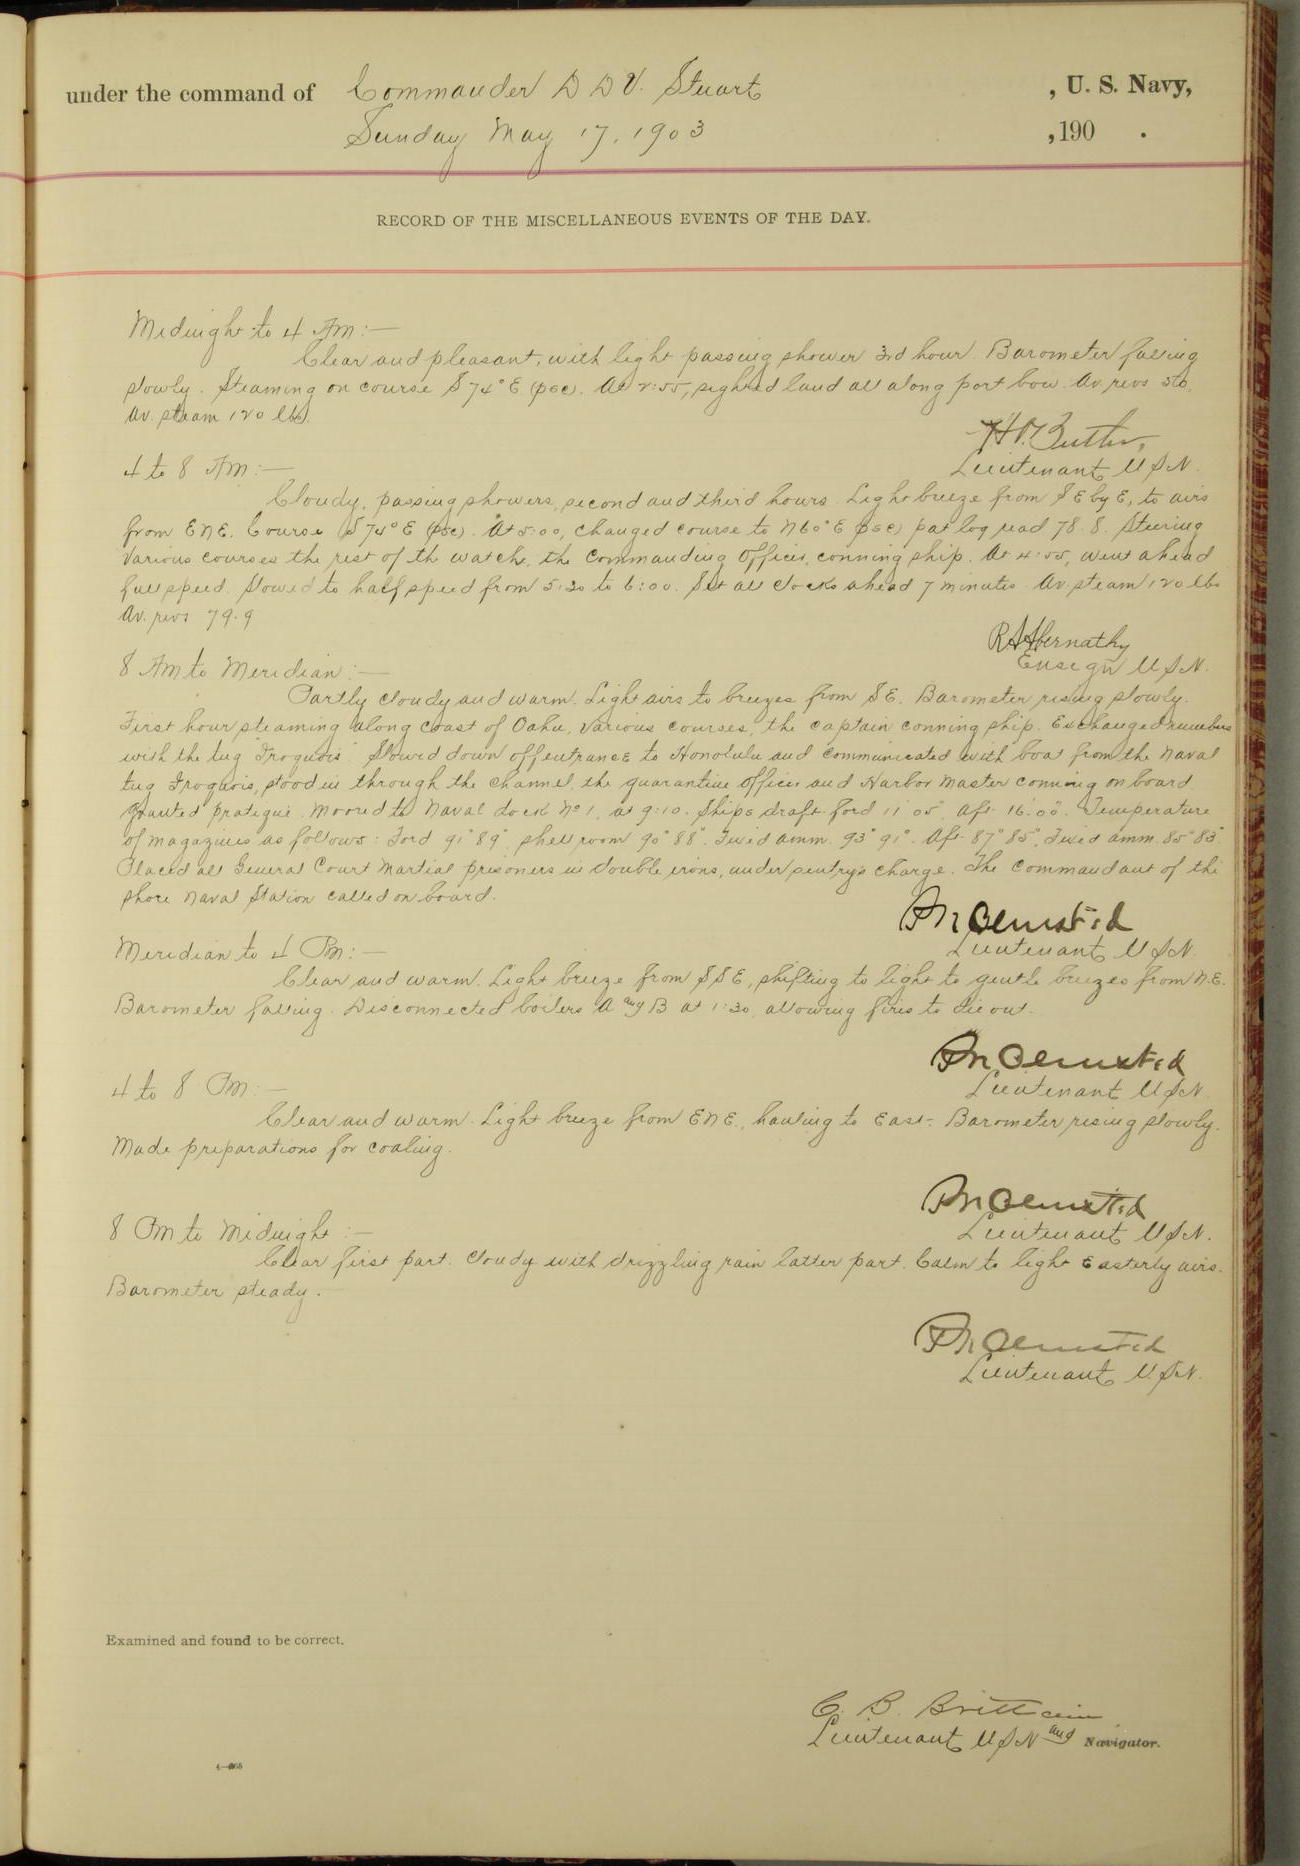 under the command of Commander D D V. Stuart , U. S. Navy,
Sunday May 17, 1903 , 190 .
RECORD OF THE MISCELLANEOUS EVENTS OF THE DAY.
Midnight to 4 Am:—
Clear and pleasant, with light passing shower 3rd hour. Barometer falling
slowly. Steaming on course S 74° E (psc). At 2:55, sighted land all along port bow. Av. revs
Av. steam 120 lbs.
Lieutenant U S N.
4 to 8 Am:—
Cloudy, passing showers, second and third hours. Light breeze from S E by E, to airs
from E N E. Course (S 74° E (psc). At 5:00, changed course to N 60° E psc) pat log read 78.8. Steering
various courses the rest of th watch, the Commanding Officer, conning ship. At 4:55, went ahead
full speed. Slowed to half speed from 5:30 to 6:00. Set all clocks ahead 7 minutes. Av. steam 120 lbs
Av. revs 79.9
R S Abernathy
Ensign U S N.
8 Am to Meridian:—
Partly cloudy and warm. Light airs to breezes from S E. Barometer rising slowly.
First hour steaming along coast of Oahu, various courses, the captain conning ship. Exchanged numbers
with the tug "Iroquois" Slowed down off entrance to Honolulu and communicated with boat from the naval
tug Iroquois, stood in through the channel, the quarantine officer and Harbor Master coming on board
Granted pratique. Moored to Naval dock No 1, at 9:10. Ships draft ford 11' 05", aft 16' 00". Temperature
of magazines as follows: Ford 91° 89°, shell room 90° 88°. Fixed amm. 93° 91°. Aft 87° 85°, Fixed amm. 85° 83°.
Placed all General Court Martial prisoners in double irons, under sentry's charge. The Commandant of the
shore Naval Station called on board.
P N Olmsted
Lieutenant U S N.
Meridian to 4 Pm:—
Clear and warm. Light breeze from S S E, shifting to light to gentle breezes from N. E.
Barometer falling. Disconnected boilers A and B at 1:30, allowing fires to die out.
P N Olmsted
Lieutenant U S N.
4 to 8 Pm:—
Clear and warm. Light breeze from E N E., hauling to East. Barometer rising slowly.
Made preparations for coaling.
P N Olmsted
Lieutenant U S N.
8 Pm to Midnight:—
Clear first part. Cloudy with drizzling rain latter part. Calm to light Easterly airs.
Barometer steady.
P N Olmsted
Lieutenant U. S. N.
Examined and found to be correct.
C. B. Brittain
Lieutenant U S N and Navigator.